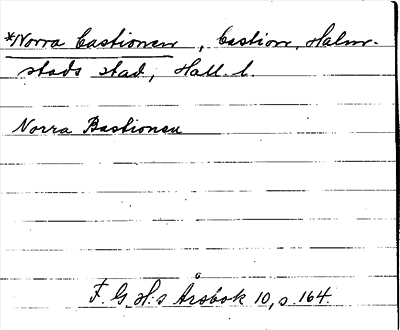 *Norra bastionen, bastion, Halm-
stads stad, Hall. l.
Norra Bastionen
F. G. H:s Årsbok 10, s. 164.